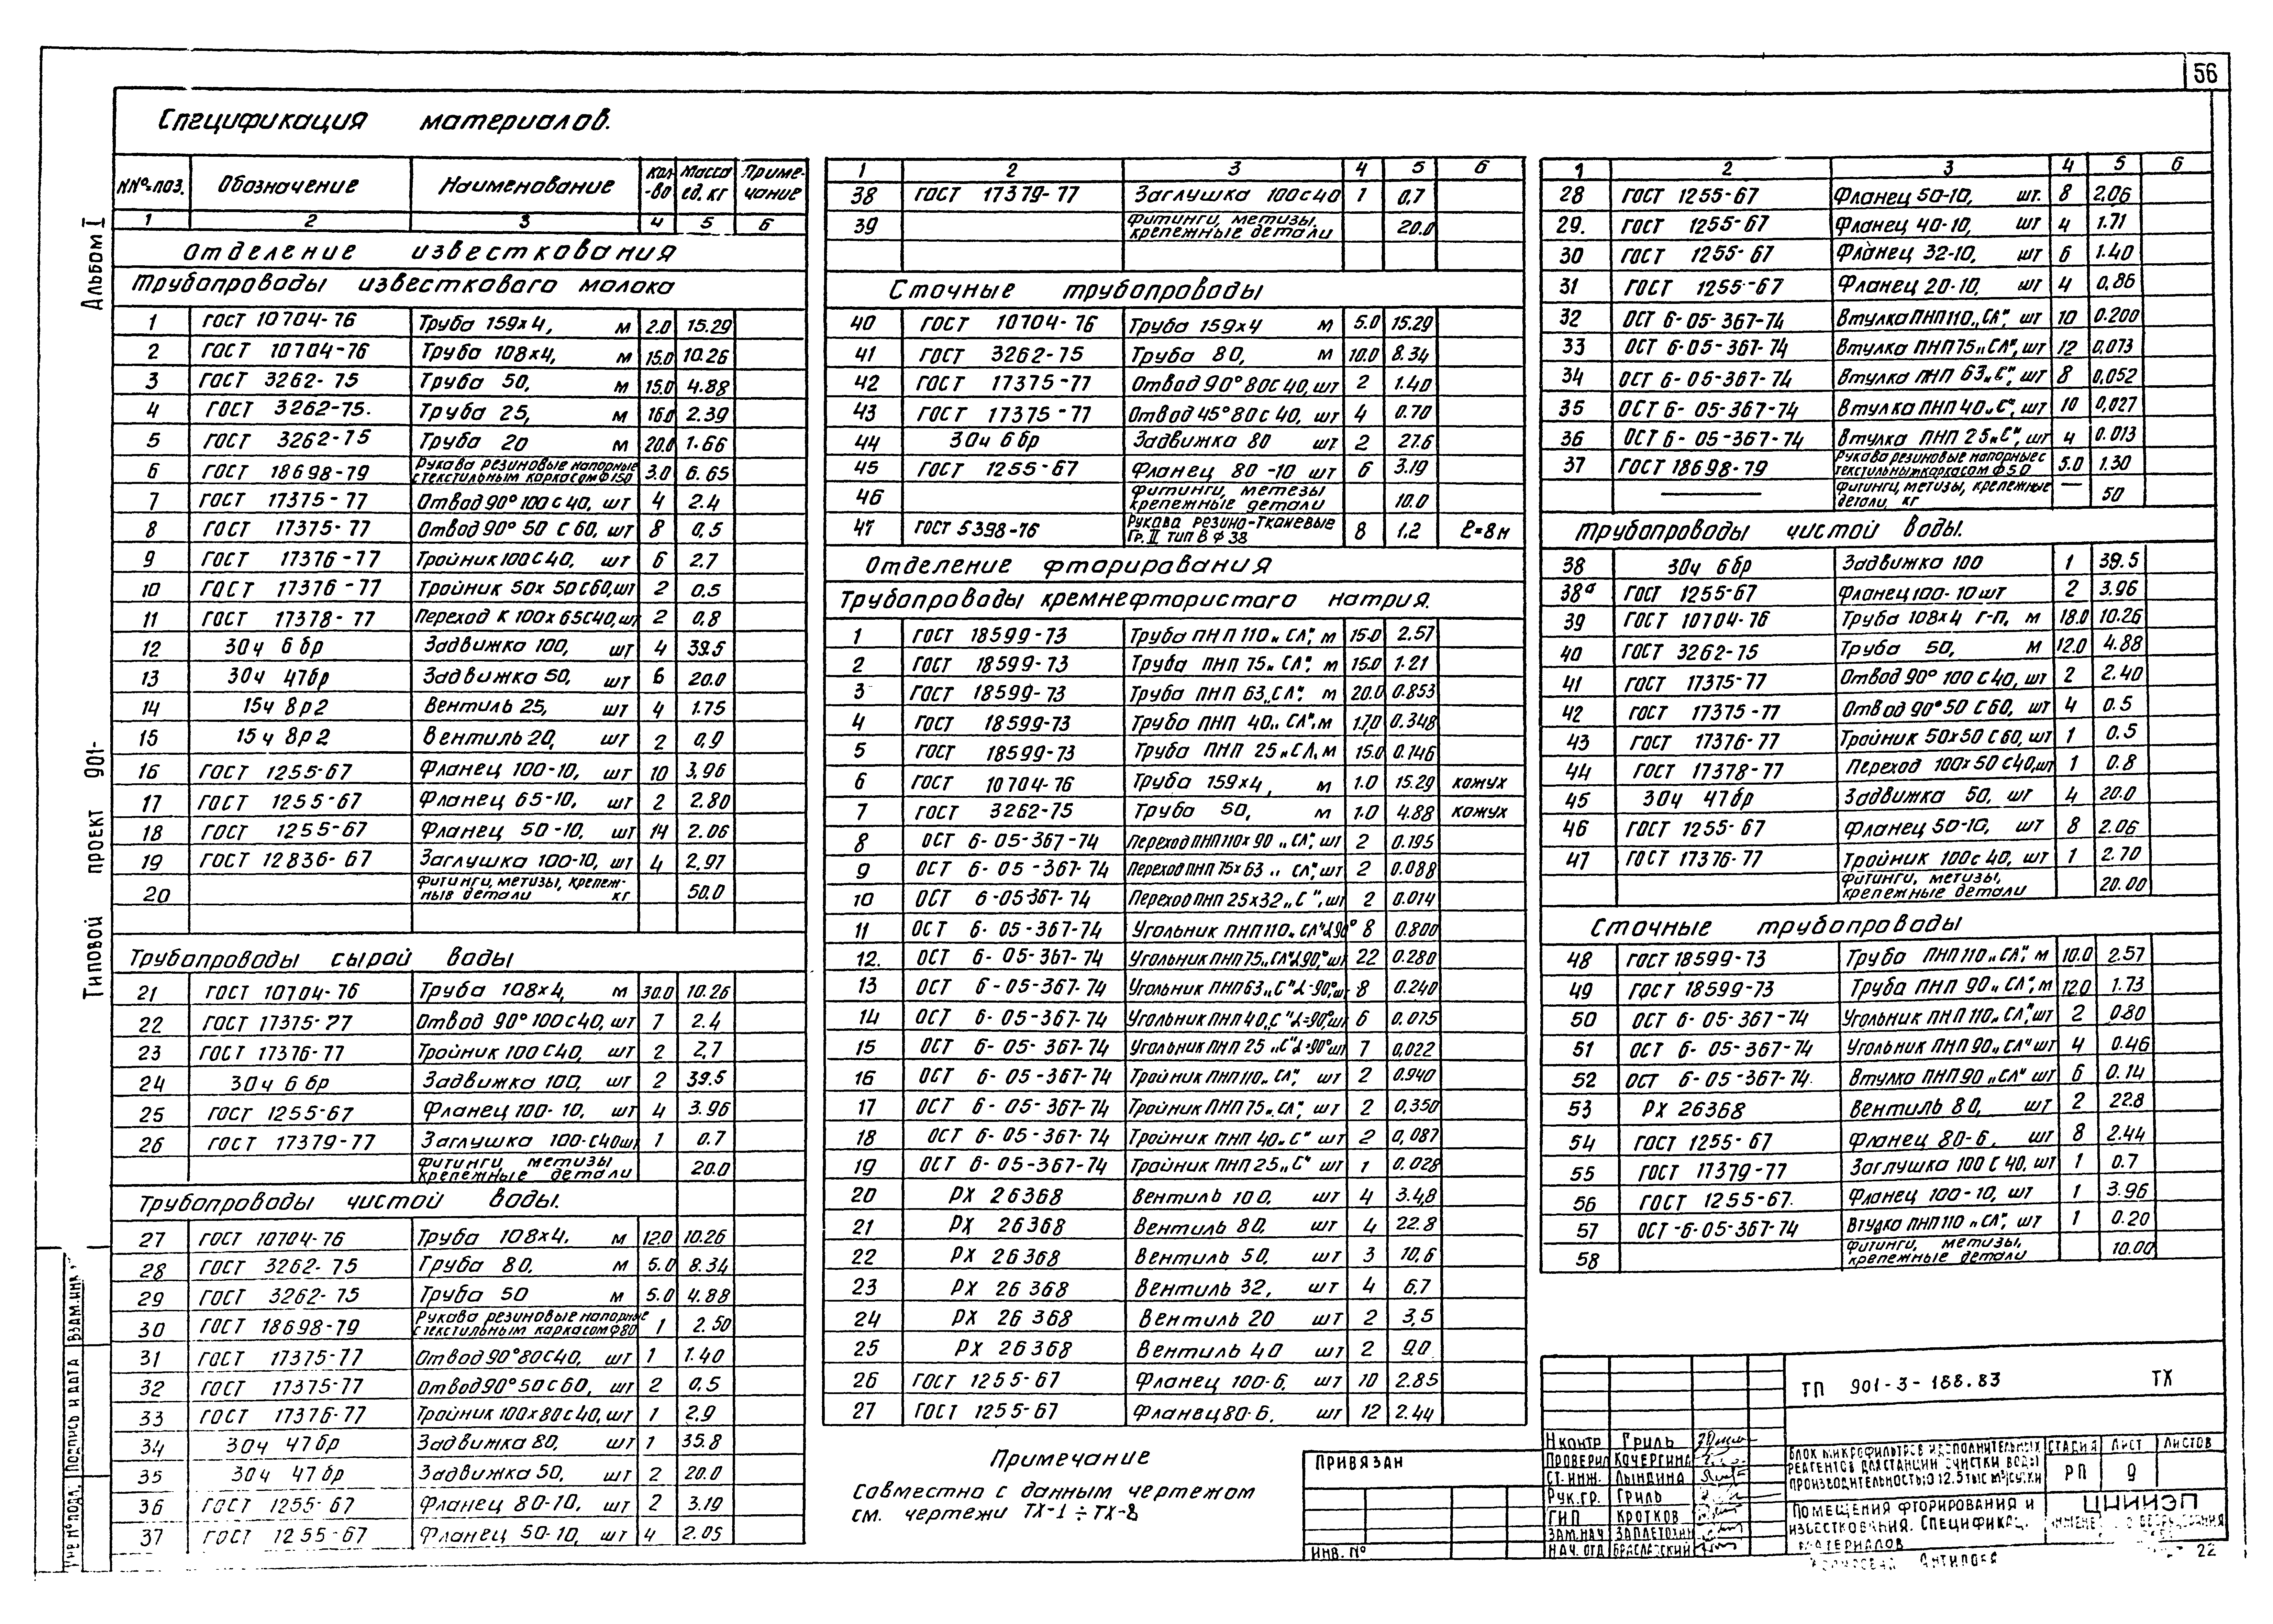 56
Спецификация материалов.
Альбом I
Типовой проект 901-
NNº-поз. Обозначение Наименование Кол-во Масса ед. кг Примечание
1 2 3 4 5 6
Отделение известкования
Трубопроводы известкового молока
1 ГОСТ 10704-76 Труба 159х4, м 2.0 15.29
2 ГОСТ 10704-76 Труба 108х4, м 15.0 10.26
3 ГОСТ 3262-75 Труба 50, м 15.0 4.88
4 ГОСТ 3262-75. Труба 25, м 16.0 2.39
5 ГОСТ 3262-75 Труба 20 м 20.0 1.66
6 ГОСТ 18698-79 Рукава резиновые напорные с текстильным каркасом ф150 3.0 6.65
7 ГОСТ 17375-77 Отвод 90° 100 с 40, шт 4 2.4
8 ГОСТ 17375-77 Отвод 90° 50 С 60, шт 8 0,5
9 ГОСТ 17376-77 Тройник 100 С 40, шт 6 2.7
10 ГОСТ 17376-77 Тройник 50х50 С60, шт 2 0.5
11 ГОСТ 17378-77 Переход К 100х65С40, шт 2 0,8
12 30ч 6 бр Задвижка 100, шт 4 39.5
13 30ч 47бр Задвижка 50, шт 6 20.0
14 15ч 8р2 Вентиль 25, шт 4 1.75
15 15ч 8р2 Вентиль 20, шт 2 0,9
16 ГОСТ 1255-67 Фланец 100-10, шт 10 3,96
17 ГОСТ 1255-67 Фланец 65-10, шт 2 2.80
18 ГОСТ 1255-67 Фланец 50-10, шт 14 2.06
19 ГОСТ 12836-67 Заглушка 100-10, шт 4 2,97
20 Фитинги, метизы, крепежные детали кг 50.0
Трубопроводы сырой воды
21 ГОСТ 10704-76 Труба 108х4, м 30.0 10.26
22 ГОСТ 17375-77 Отвод 90° 100 с 40, шт 7 2.4
23 ГОСТ 17376-77 Тройник 100 С40, шт 2 2,7
24 30ч 6 бр Задвижка 100, шт 2 39.5
25 ГОСТ 1255-67 Фланец 100-10, шт 4 3.96
26 ГОСТ 17379-77 Заглушка 100-С40шт 1 0.7
Фитинги метизы крепежные детали 20.0
Трубопроводы чистой воды.
27 ГОСТ 10704-76 Труба 108х4. м 12.0 10.26
28 ГОСТ 3262-75 Труба 80, м 5.0 8.34
29 ГОСТ 3262-75 Труба 50 м 5.0 4.88
30 ГОСТ 18698-79 Рукава резиновые напорные с текстильным каркасом ф80 1 2.50
31 ГОСТ 17375-77 Отвод 90° 80С40, шт 1 1.40
32 ГОСТ 17375-77 Отвод 90° 50 С 60, шт 2 0,5
33 ГОСТ 17376-77 Тройник 100х80с40, шт 1 2.9
34 30ч 47бр Задвижка 80, шт 1 35.8
35 30ч 47бр Задвижка 50, шт 2 20.0
36 ГОСТ 1255-67 Фланец 80-10, шт 2 3.19
37 ГОСТ 1255-67 Фланец 50-10, шт 4 2.05
1 2 3 4 5 6
38 ГОСТ 17379-77 Заглушка 100с40 1 0,7
39 Фитинги, метизы, крепежные детали 20.0
Сточные трубопроводы
40 ГОСТ 10704-76 Труба 159х4 м 5.0 15.29
41 ГОСТ 3262-75 Труба 80, м 10.0 8.34
42 ГОСТ 17375-77 Отвод 90° 80с 40, шт 2 1.40
43 ГОСТ 17375-77 Отвод 45° 80 с 40, шт 4 0.70
44 30ч 6 бр Задвижка 80 шт 2 27.6
45 ГОСТ 1255-67 Фланец 80-10 шт 6 3.19
46 Фитинги, метезы крепежные детали 10.0
47 ГОСТ 5398-76 Рукава резино-тканевые Гр. II тип В ф 38 8 1.2 ℓ=8м
Отделение фторирования
Трубопроводы кремнефтористого натрия.
1 ГОСТ 18599-73 Труба ПНП 110 „СЛ“, м 15.0 2.57
2 ГОСТ 18599-73 Труба ПНП 75 „СЛ“, м 15.0 1.21
3 ГОСТ 18599-73 Труба ПНП 63 „СЛ“. м 20.0 0.853
4 ГОСТ 18599-73 Труба ПНП 40 „СЛ“. м 1,70 0.348
5 ГОСТ 18599-73 Труба ПНП 25 „СЛ. м 15.0 0.146
6 ГОСТ 10704-76 Труба 159х4, м 1.0 15.29 кожух
7 ГОСТ 3262-75 Труба 50, м 1.0 4.88 кожух
8 ОСТ 6-05-367-74 Переход ПНП110х90 „СЛ“, шт 2 0.195
9 ОСТ 6-05-367-74 Переход ПНП 75х63 „СЛ“, шт 2 0.088
10 ОСТ 6-05-367-74 Переход ПНП 25х32 „С“, шт 2 0.014
11 ОСТ 6-05-367-74 Угольник ПНП110 „СЛ“ ∠90° 8 0.800
12. ОСТ 6-05-367-74 Угольник ПНП 75 „СЛ“ ∠90,° шт 22 0.280
13 ОСТ 6-05-367-74 Угольник ПНП 63 „С“ ∠-90°, шт 8 0.240
14 ОСТ 6-05-367-74 Угольник ПНП 40 „С“ ∠=90°, шт 6 0.075
15 ОСТ 6-05-367-74 Угольник ПНП 25 „С“ ∠=90° шт 7 0,022
16 ОСТ 6-05-367-74 Тройник ПНП110 „СЛ“, шт 2 0.940
17 ОСТ 6-05-367-74 Тройник ПНП 75 „СЛ“, шт 2 0,350
18 ОСТ 6-05-367-74 Тройник ПНП 40 „С“ шт 2 0,087
19 ОСТ 6-05-367-74 Тройник ПНП 25 „С“ шт 1 0.028
20 РХ 26368 Вентиль 100, шт 4 3.4,8
21 РХ 26368 Вентиль 80, шт 4 22.8
22 РХ 26368 Вентиль 50, шт 3 10,6
23 РХ 26 368 Вентиль 32, шт 4 6,7
24 РХ 26 368 Вентиль 20 шт 2 3,5
25 РХ 26368 Вентиль 40 шт 2 9.0
26 ГОСТ 1255-67 Фланец 100-6. шт 10 2.85
27 ГОСТ 1255-67 Фланец 80-6. шт 12 2.44
Примечание
Совместно с данным чертежом
см. чертежи ТХ-1 ÷ ТХ-8
1 2 3 4 5 6
28 ГОСТ 1255-67 Фланец 50-10, шт. 8 2.06
29. ГОСТ 1255-67 Фланец 40-10, шт 4 1.71
30 ГОСТ 1255-67 Фланец 32-10, шт 6 1.40
31 ГОСТ 1255-67 Фланец 20-10, шт 4 0,86
32 ОСТ 6-05-367-74 Втулка ПНП110 „СЛ“, шт 10 0.200
33 ОСТ 6-05-367-74 Втулка ПНП75 „СЛ“, шт 12 0,073
34 ОСТ 6-05-367-74 Втулка ПНП 63 „С“, шт 8 0,052
35 ОСТ 6-05-367-74 Втулка ПНП 40 „С“, шт 10 0,027
36 ОСТ 6-05-367-74 Втулка ПНП 25 „С“, шт 4 0.013
37 ГОСТ 18698-79 Рукава резиновые напорные с текстильным каркасом ф50 5.0 1.30
— Фитинги, метизы, крепежные детали, кг — 50
Трубопроводы чистой воды.
38 30ч 6 бр Задвижка 100 1 39.5
38а ГОСТ 1255-67 Фланец 100-10 шт 2 3.96
39 ГОСТ 10704-76 Труба 108х4 г-п, м 18.0 10.26
40 ГОСТ 3262-75 Труба 50, м 12.0 4.88
41 ГОСТ 17375-77 Отвод 90° 100 с 40, шт 2 2.40
42 ГОСТ 17375-77 Отвод 90° 50 С 60, шт 4 0.5
43 ГОСТ 17376-77 Тройник 50х50 С 60, шт 1 0.5
44 ГОСТ 17378-77 Переход 100х50 с40, шт 1 0.8
45 30ч 47бр Задвижка 50, шт 4 20.0
46 ГОСТ 1255-67 Фланец 50-10, шт 8 2.06
47 ГОСТ 17376-77 Тройник 100с 40, шт 1 2.70
Фитинги, метизы, крепежные детали 20.00
Сточные трубопроводы
48 ГОСТ 18599-73 Труба ПНП 110 „СЛ“, м 10.0 2.57
49 ГОСТ 18599-73 Труба ПНП 90 „СЛ“, м 12.0 1.73
50 ОСТ 6-05-367-74 Угольник ПНП 110 „СЛ“, шт 2 0.80
51 ОСТ 6-05-367-74 Угольник ПНП 90 „СЛ“ шт 4 0.46
52 ОСТ 6-05-367-74. Втулка ПНП 90 „СЛ“ шт 6 0.14
53 РХ 26368 Вентиль 80, шт 2 22.8
54 ГОСТ 1255-67 Фланец 80-6. шт 8 2.44
55 ГОСТ 17379-77 Заглушка 100 С 40, шт 1 0.7
56 ГОСТ 1255-67. Фланец 100-10, шт 1 3.96
57 ОСТ-6-05-367-74 Втулка ПНП110 „СЛ“, шт 1 0.20
58 Фитинги, метизы, крепежные детали 10.00
ПРИВЯЗАН
ИНВ. Nº
ТП 901-3-188.83 ТХ
Н контр Гриль
Проверил Кочергина
Ст. инж. Лындина
Рук. гр. Гриль
ГИП Кротков
Зам. нач Заплетохин
Нач. отд Браславский
Блок микрофильтров и дополнительных реагентов для станции очистки воды производительностью 12.5 тыс м³/сутки
Стадия Лист Листов
РП 9
Помещения фторирования и известкования. Спецификац. материалов
ЦНИИЭП
22
Инв Nº подл. Подпись и дата Взам. инв